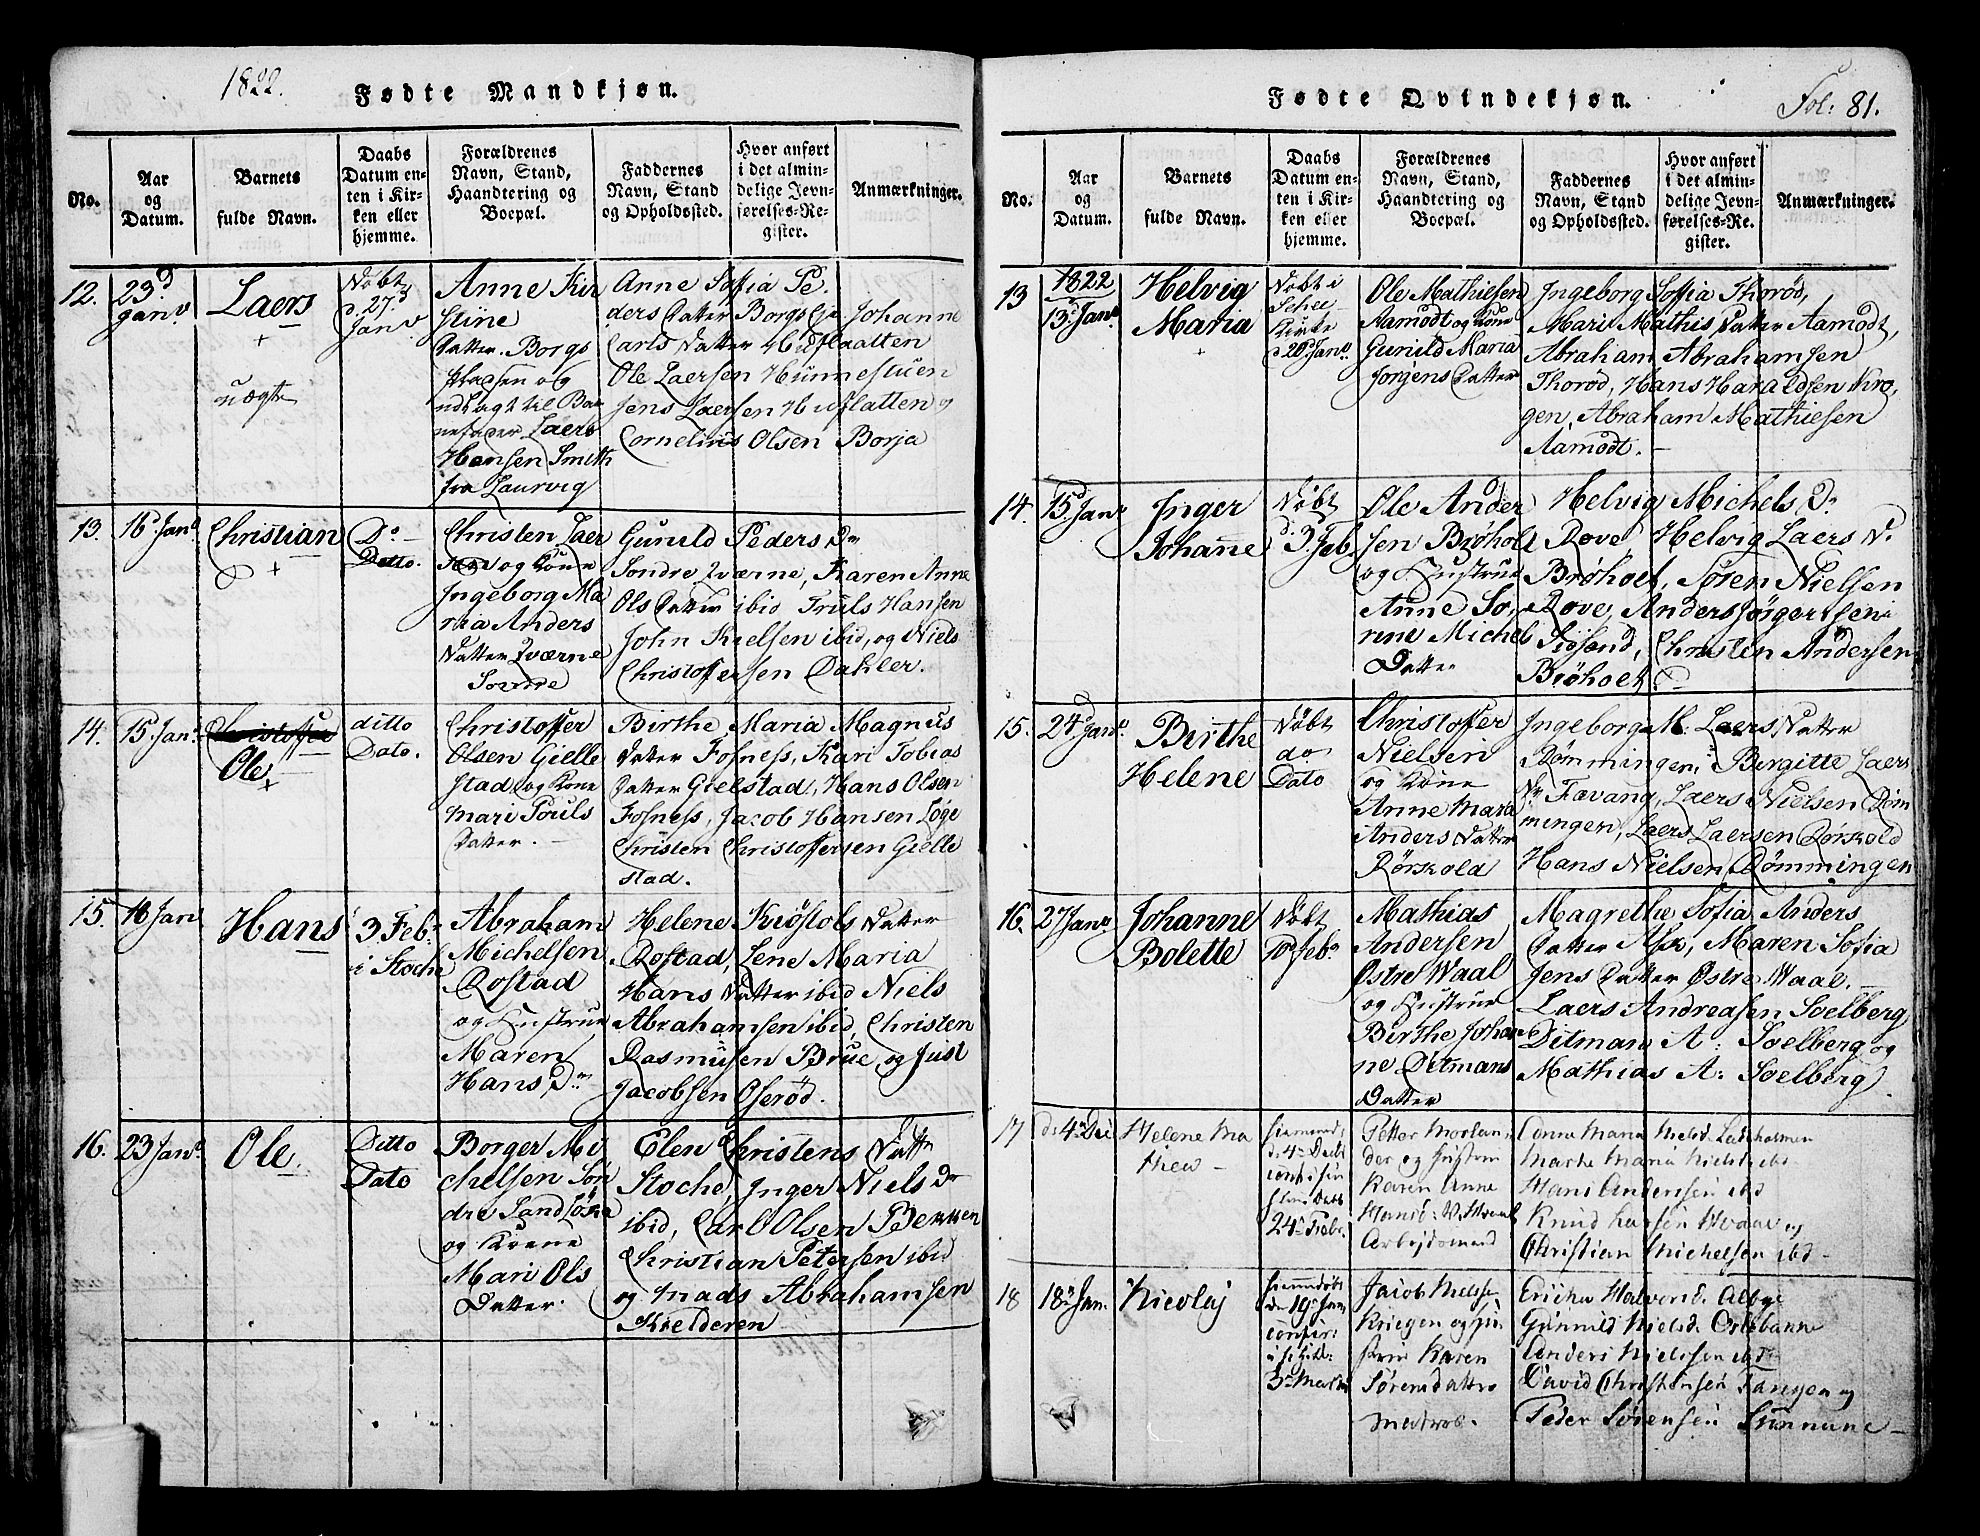 1822.
Fødte Mandkjøn.
No.
Aar
og
Datum.
Barnets
fulde Navn.
Daabs
Datum en-
ten i Kir-
ken eller
hjemme.
Forældrenes
Navn, Stand,
Haandtering og
Boepæl.
Faddernes
Navn, Stand
og Opholdssted.
Hvor anført
i det almin-
delige Jevn-
førelses-Re-
gister.
Anmærkninger.
12.
23d
Janv
Laers
+
uægte
Døbt
d. 27d
Janv
Anne Kir
stine
Datter. Borgs
Pladsen og
udlagt til Bar
nefader Laers
Hansen Smith
fra Laurvig
Anne Sofia Pe.
ders Datter Borgs Eje Johanne
Carls Datter Huflaatten
Ole Laersen Hunnestuen
Jens Laersen Huflatten og
Cornelius Olsen Borja
13.
16 Janv
Christian
+
Do
Datto.
Christen Laer
sen og Kone
Ingeborg Ma
ria Anders
Datter Qværne
Søndre
Gunild Peders Dr
Sondre Qværne, Karen Anne
Ols Datter ibid Truls Hansen
John Kielsen ibid, og Niels
Christoffersen Dahler.
14.
15 Janv
Christoffer
Ole
+
ditto
Dato.
Christoffer
Olsen Gielle
stad og Kone
Mari Pouls
Datter. -
Birthe Maria Magnus
Datter Fosness, Kari Tobias
Datter Gielstad, Hans Olsen
Fosness, Jacob Hansen Løge
Christen Christoffersen Gielle
stad.
15.
18 Janv
Hans
3 Febr
i Stoche
Abraham
Michelsen
Rostad
og Hustrue
Maren
Hans Dr
Helene Kiøstols Datter
Rostad, Lene Maria
Hans Datter ibid Niels
Abrahamsen ibid, Christen
Rasmusen Brue, og Just
Jacobsen Oserød.
16.
23 Janv
Ole.
Ditto
Dato
Borger Mi
chelsen Søn
dre Sandløkke
og Kone
Mari Ols
Datter.
Elen Christens Datter
Stoche, Inger Niels Dr
ibid, Carl Olsen Bekken
Christian Petersen ibid
og Mads Abrahamsen
Kielderen
Fødte Qvindekjøn.
Fol: 81.
No.
Aar
og
Datum.
Barnets
fulde Navn.
Daabs
Datum en-
ten i Kir-
ken eller
hjemme.
Forældrenes
Navn, Stand,
Haandtering og
Boepæl.
Faddernes
Navn, Stand
og Opholdssted.
Hvor anført
i det almin-
delige Jevn-
førelses-Re-
gister.
Anmærkninger.
13
1822
13d Janv
Helvig
Maria
+
Døbt i
Schee
Kirke
d 20d Janv
Ole Mathiesen
Aamodt og Kone
Gunild Maria
Jorgens Datter
Ingeborg Sofia Thorød,
Mari Mathis Datter Aamodt,
Abraham Abrahamsen
Thorød, Hans Haraldsen Kro,
gen, Abraham Mathiesen
Aamodt. -
14.
15 Janv
Inger
Johanne
Døbt
d. 3 Feb.
Ole Ander
sen Brøholt
og Hustrue
Anne So,
rine Michels
Datter
Helvig Michels Dr
Rove, Helvig Laers D.
Brøholt, Søren Nielsen
Rove, Anders Jørgensen
Christen Andersen
Brøholt.
15.
24d Janv.
Birthe
Helene
Døbt
do
Dato
Christoffer
Nielsen
og Kone
Anne Maria
Anders Datter
Rørskold
Ingeborg M: Laers Datter
Rømmingen, Bergitte Laers
Dr Favang, Laers Nielsen Røm
mingen, Laers Laersen Rørskold
Hans Nielsen Rømmingen
16.
27 Janv
Johanne
Bolette
Døbt
10d Febr
Mathias
Andersen
Østre Waal
og Hustrue
Birthe Johan
ne Ditmans
Datter
Magrethe Sofia Anders
Datter Ask, Maren Sofia
Jens Datter Østre Waal. -
Laers Andreasen Soelberg
Ditman A: Soelberg og
Mathias A: Soelberg
17
Helene Ma
24de Febr.
Petter Morlan,
der og Hustrue
Karen Anne
Arbejdsmand
Anna Maria
Marte Maria Niels ibd.
Hans Andersen ibd
Knud Larsen Hvaal og
Christian Michelsen ibd -
18
18de Jan.
Nicolaj
Hiemmedøbt
de 19de Jan
3de
Jacob Nielsen
Krregen og Hu
strue Karen
Sørensdatter
Matros.
Gunnild Nielsd.
Anders Nielsen ibd
David Christensen og
Peder Sørensen